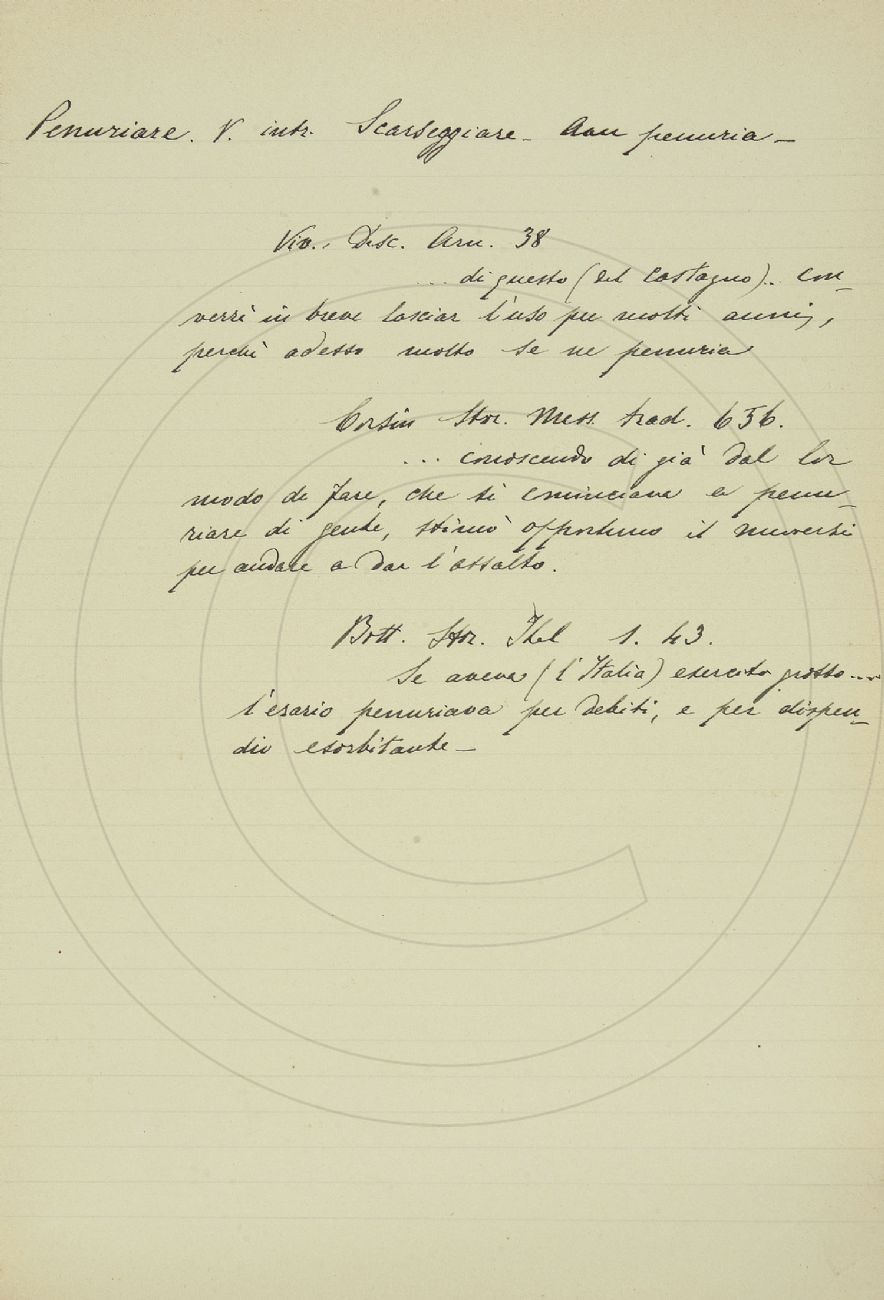 Penuriare. V. intr. Scarseggiare – Aver penuria –
Viv. Disc. Arn. 38
... di questo (del castagno).. con-
verrà in breve lasciar l'uso per molti anni,
perchè adesso molto se ne penuria
Corsin Stor. Mess. trad. 656.
... conoscendo di già dal lor
modo di fare, che si cominciava a penu-
riare di gente, stimò opportuno il muoversi
per andare a dar l'assalto.
Bott. Stor. Ital 1. 43.
Se aveva (l'Italia) esercito grosso....
l'erario penuriava per debiti, e per dispen-
dio esorbitante –